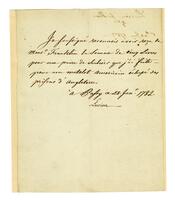 Je soussigné reconnais avoir reçu de
Monsr Franklin la Somme de cinq Livres
pour une paire de souliers que j'ai fait
pour un matelot américain échapé des
prisons d'Angleterre.
à Passy ce 28 Janr 1782.